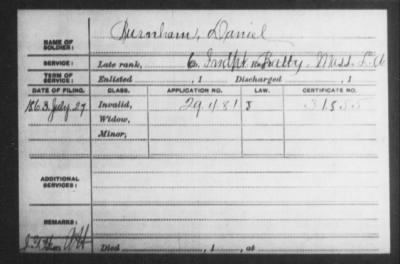 Burnham, Daniel
NAME OF
SOLDIER:
SERVICE:
Late rank, Batty. Mass. L. A
TERM OF
SERVICE:
Enlisted , 1 Discharged , 1
DATE OF FILING. CLASS. APPLICATION NO. LAW. CERTIFICATE NO.
1863. July 27 Invalid, 29481 J 31555
Widow,
Minor,
ADDITIONAL
SERVICES:
REMARKS:
Died , 1 , at